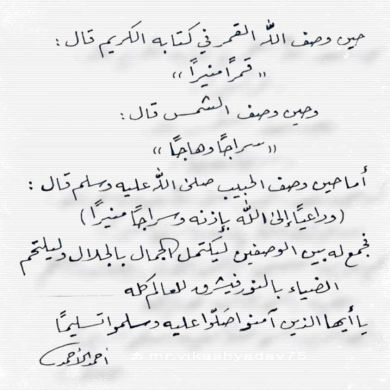 حين وصف الله القمر في كتابه الكريم قال :
،، قمرًا منيرًا ،،
وحين وصف الشمس قال :
،، سراجًا وهاجًا ،،
أما حين وصف الحبيب صلى الله عليه وسلم قال :
( وداعيًا إلى الله بإذنه وسراجًا منيرًا )
فجمع له بين الوصفين ليكتمل الجمال بالجلال وليلتحم
الضياء بالنور فيشرق للعالم كله
يا أيها الذين آمنوا صلّوا عليه وسلموا تسليمًا
mr.vikashyadav75